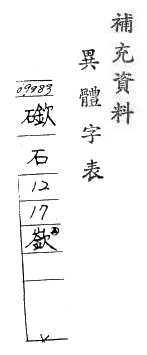 補充資料
異體字表
09983
石
12
17
嶔